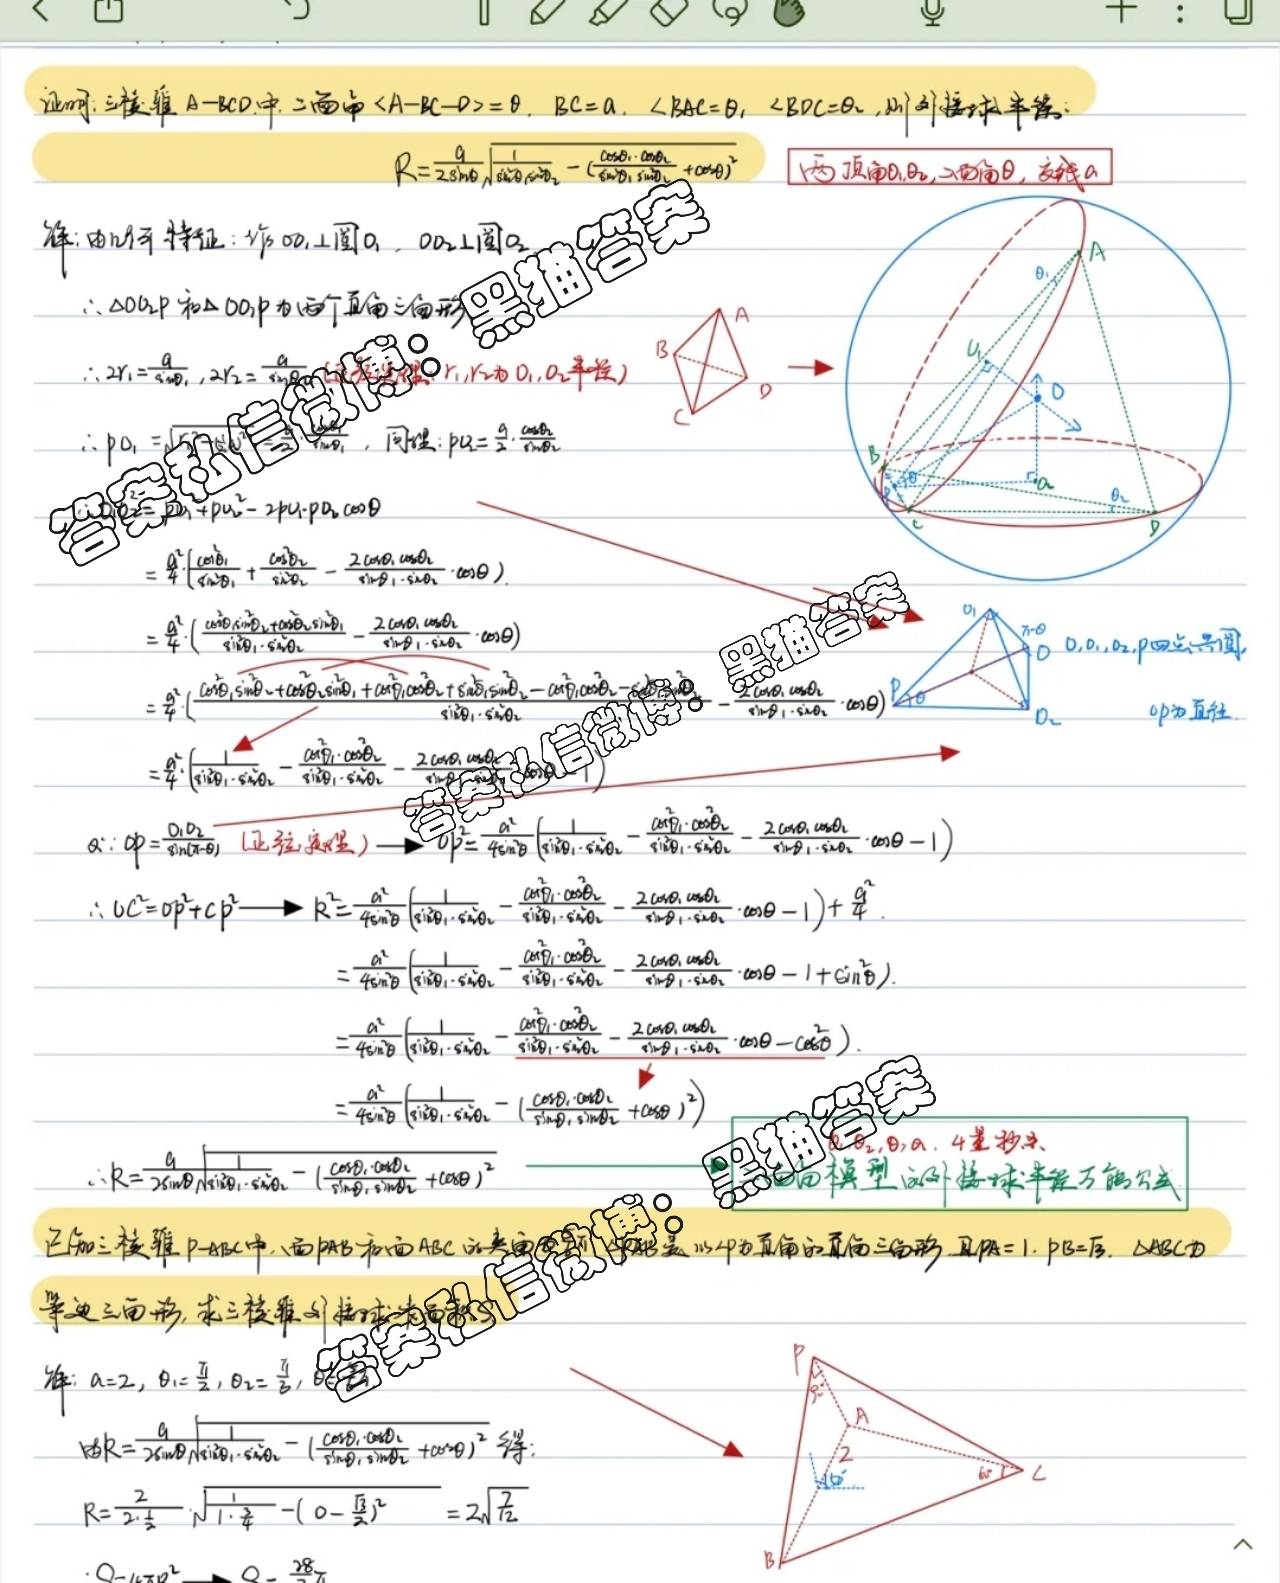 证明:三棱锥 A-BCD 中,二面角<A-BC-D>=θ, BC=a, ∠BAC=θ₁ ∠BDC=θ₂,则外接球半径:
R=a/(2sinθ)√(1/(sin²θ₁sin²θ₂)-(cosθ₁·cosθ₂/(sinθ₁sinθ₂)+cosθ)²)
两顶角θ₁θ₂,二面角θ,交线a
解:由几何特征:作OO₁⊥圆O₁, OO₂⊥圆O₂
∴△OO₂P和△OO₁P为两个直角三角形
∴2r₁=a/sinθ₁, 2r₂=a/sinθ₂ r₁,r₂为O₁,O₂半径)
同理:PO₂=a/2·cosθ₂/sinθ₂
O₁O₂²=PO₁²+PO₂²-2PO₁·PO₂cosθ
=a²/4(cos²θ₁/sin²θ₁+cos²θ₂/sin²θ₂-2cosθ₁cosθ₂/(sinθ₁·sinθ₂)·cosθ).
=a²/4·((cos²θ₁sin²θ₂+cos²θ₂sin²θ₁)/(sin²θ₁·sin²θ₂)-2cosθ₁cosθ₂/(sinθ₁·sinθ₂)·cosθ)
=a²/4·((cos²θ₁sin²θ₂+cos²θ₂sin²θ₁+cos²θ₁cos²θ₂+sin²θ₁sin²θ₂-cos²θ₁cos²θ₂-sin²θ₁sin²θ₂)/(sin²θ₁·sin²θ₂)-2cosθ₁cosθ₂/(sinθ₁·sinθ₂)·cosθ)
=a²/4·(1/(sin²θ₁·sin²θ₂)-cos²θ₁·cos²θ₂/(sin²θ₁·sin²θ₂)-2cosθ₁cosθ₂/(sinθ₁·sinθ₂)·cosθ-1)
又∵OP=O₁O₂/sin(π-θ) (正弦定理) → OP²=a²/(4sin²θ)(1/(sin²θ₁·sin²θ₂)-cos²θ₁·cos²θ₂/(sin²θ₁·sin²θ₂)-2cosθ₁cosθ₂/(sinθ₁·sinθ₂)·cosθ-1)
∴OC²=OP²+CP² → R²=a²/(4sin²θ)(1/(sin²θ₁·sin²θ₂)-cos²θ₁·cos²θ₂/(sin²θ₁·sin²θ₂)-2cosθ₁cosθ₂/(sinθ₁·sinθ₂)·cosθ-1)+a²/4.
=a²/(4sin²θ)(1/(sin²θ₁·sin²θ₂)-cos²θ₁·cos²θ₂/(sin²θ₁·sin²θ₂)-2cosθ₁cosθ₂/(sinθ₁·sinθ₂)·cosθ-1+sin²θ).
=a²/(4sin²θ)(1/(sin²θ₁·sin²θ₂)-cos²θ₁·cos²θ₂/(sin²θ₁·sin²θ₂)-2cosθ₁cosθ₂/(sinθ₁·sinθ₂)·cosθ-cos²θ).
=a²/(4sin²θ)(1/(sin²θ₁·sin²θ₂)-(cosθ₁·cosθ₂/(sinθ₁sinθ₂)+cosθ)²)
∴R=a/(2sinθ)√(1/(sin²θ₁·sin²θ₂)-(cosθ₁·cosθ₂/(sinθ₁sinθ₂)+cosθ)²)
θ₂,θ,a. 4量秒杀
模型的外接球半径万能公式
已知三棱锥P-ABC中,面PAB和面ABC的夹角 是以∠P为直角的直角三角形 且PA=1. PB=√3. △ABC为
等边三角形,求三棱锥外接球表面积S
解: a=2, θ₁=π/2, θ₂=π/3,
由R=a/(2sinθ)√(1/(sin²θ₁·sin²θ₂)-(cosθ₁·cosθ₂/(sinθ₁sinθ₂)+cosθ)²) 得:
R=2/(2·1/2)·√(1/(1·3/4)-(0-√3/2)²)=2√(7/12)
A
B
C
D
A
θ₁
O₁
O
B
P
θ
O₂
θ₂
C
D
O₁
π-θ
O
P
θ
O₂
O,O₁,O₂,P四点共圆,
OP为直径.
P
A
2
60°
C
B
答案私信微博:黑猫答案
答案私信微博:黑猫答案
答案私信微博:黑猫答案